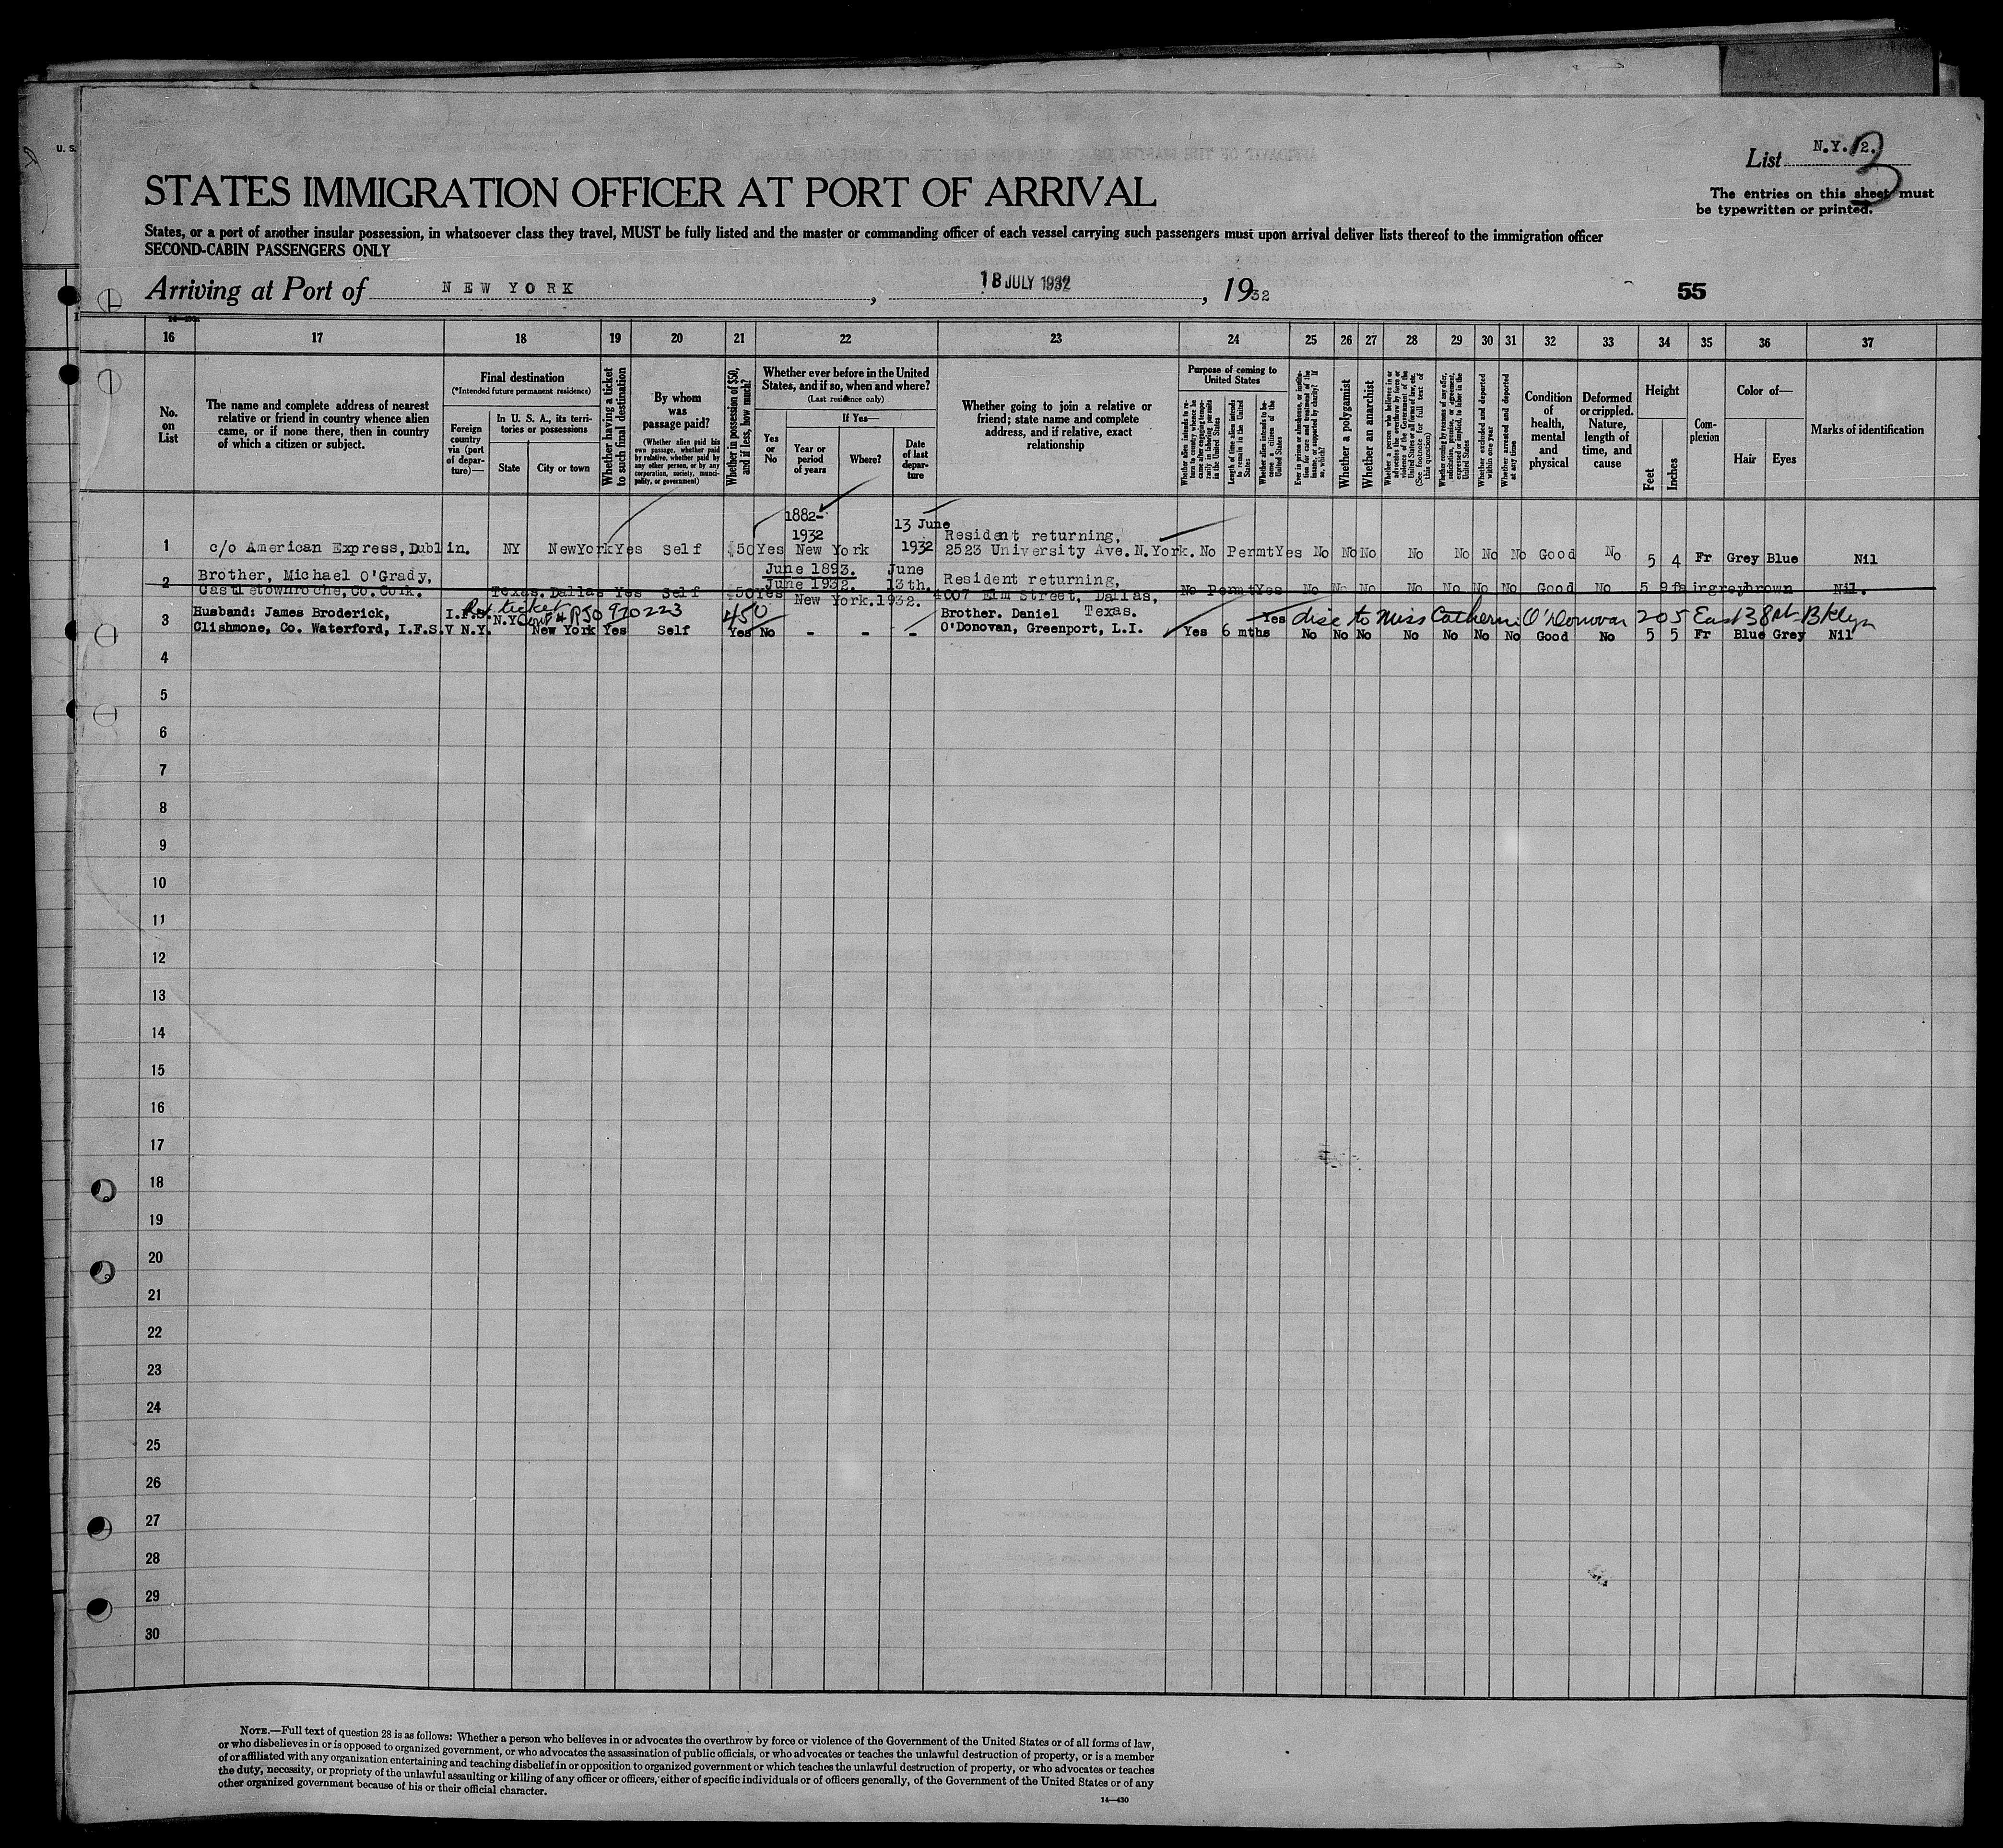 U. S.
List N.Y. 2.
3
STATES IMMIGRATION OFFICER AT PORT OF ARRIVAL
The entries on this sheet must
be typewritten or printed.
States, or a port of another insular possession, in whatsoever class they travel, MUST be fully listed and the master or commanding officer of each vessel carrying such passengers must upon arrival deliver lists thereof to the immigration officer
SECOND-CABIN PASSENGERS ONLY
Arriving at Port of NEW YORK, 18 JULY 1932, 1932
55
16 17 18 19 20 21 22 23 24 25 26 27 28 29 30 31 32 33 34 35 36 37
No. on List
The name and complete address of nearest relative or friend in country whence alien came, or if none there, then in country of which a citizen or subject.
Final destination
(*Intended future permanent residence)
Foreign country via (port of departure)—
In U. S. A., its territories or possessions
State
City or town
Whether having a ticket to such final destination
By whom was passage paid?
(Whether alien paid his own passage, whether paid by relative, whether paid by any other person, or by any corporation, society, municipality, or government)
Whether in possession of $50, and if less, how much?
Whether ever before in the United States, and if so, when and where?
(Last residence only)
Yes or No
If Yes—
Year or period of years
Where?
Date of last departure
Whether going to join a relative or friend; state name and complete address, and if relative, exact relationship
Purpose of coming to United States
Whether alien intends to return to country whence he came after engaging temporarily in laboring pursuits in the United States
Length of time alien intends to remain in the United States
Whether alien intends to become a citizen of the United States
Ever in prison or almshouse, or institution for care and treatment of the insane, or supported by charity? If so, which?
Whether a polygamist
Whether an anarchist
Whether a person who believes in or advocates the overthrow by force or violence of the Government of the United States or all forms of law, etc. (See footnote for full text of this question)
Whether coming by reason of any offer, solicitation, promise, or agreement, expressed or implied, to labor in the United States
Whether excluded and deported within one year
Whether arrested and deported at any time
Condition of health, mental and physical
Deformed or crippled. Nature, length of time, and cause
Height
Feet
Inches
Complexion
Color of—
Hair
Eyes
Marks of identification
1882- 13 June
1932 Resident returning,
1 c/o American Express, Dublin. NY NewYork Yes Self $50 Yes New York 1932 2523 University Ave. N.York. No Permt Yes No No No No No No No Good No 5 4 Fr Grey Blue Nil
Brother, Michael O'Grady, June 1893. June
2 Castletownroche, Co. Cork. Texas. Dallas Yes Self $50 Yes June 1932. 13th. Resident returning,
New York. 1932. 4007 Elm Street, Dallas, No Permt Yes No No No No No No No Good No 5 9 fair grey brown Nil.
Texas.
Husband: James Broderick, I.F.S. Ret. ticket # 920223 450 Brother. Daniel Yes disc to Miss Catherine O'Donovan 205 East 38 St Bklyn
3 Clishmone, Co. Waterford, I.F.S. V N.Y. N.Y. New York Yes Self Yes No - - - O'Donovan, Greenport, L.I. Yes 6 mths No No No No No No No Good No 5 5 Fr Blue Grey Nil
4
5
6
7
8
9
10
11
12
13
14
15
16
17
18
19
20
21
22
23
24
25
26
27
28
29
30
NOTE.—Full text of question 28 is as follows: Whether a person who believes in or advocates the overthrow by force or violence of the Government of the United States or of all forms of law,
or who disbelieves in or is opposed to organized government, or who advocates the assassination of public officials, or who advocates or teaches the unlawful destruction of property, or is a member
of or affiliated with any organization entertaining and teaching disbelief in or opposition to organized government or which teaches the unlawful destruction of property, or who advocates or teaches
the duty, necessity, or propriety of the unlawful assaulting or killing of any officer or officers, either of specific individuals or of officers generally, of the Government of the United States or of any
other organized government because of his or their official character.
14—430